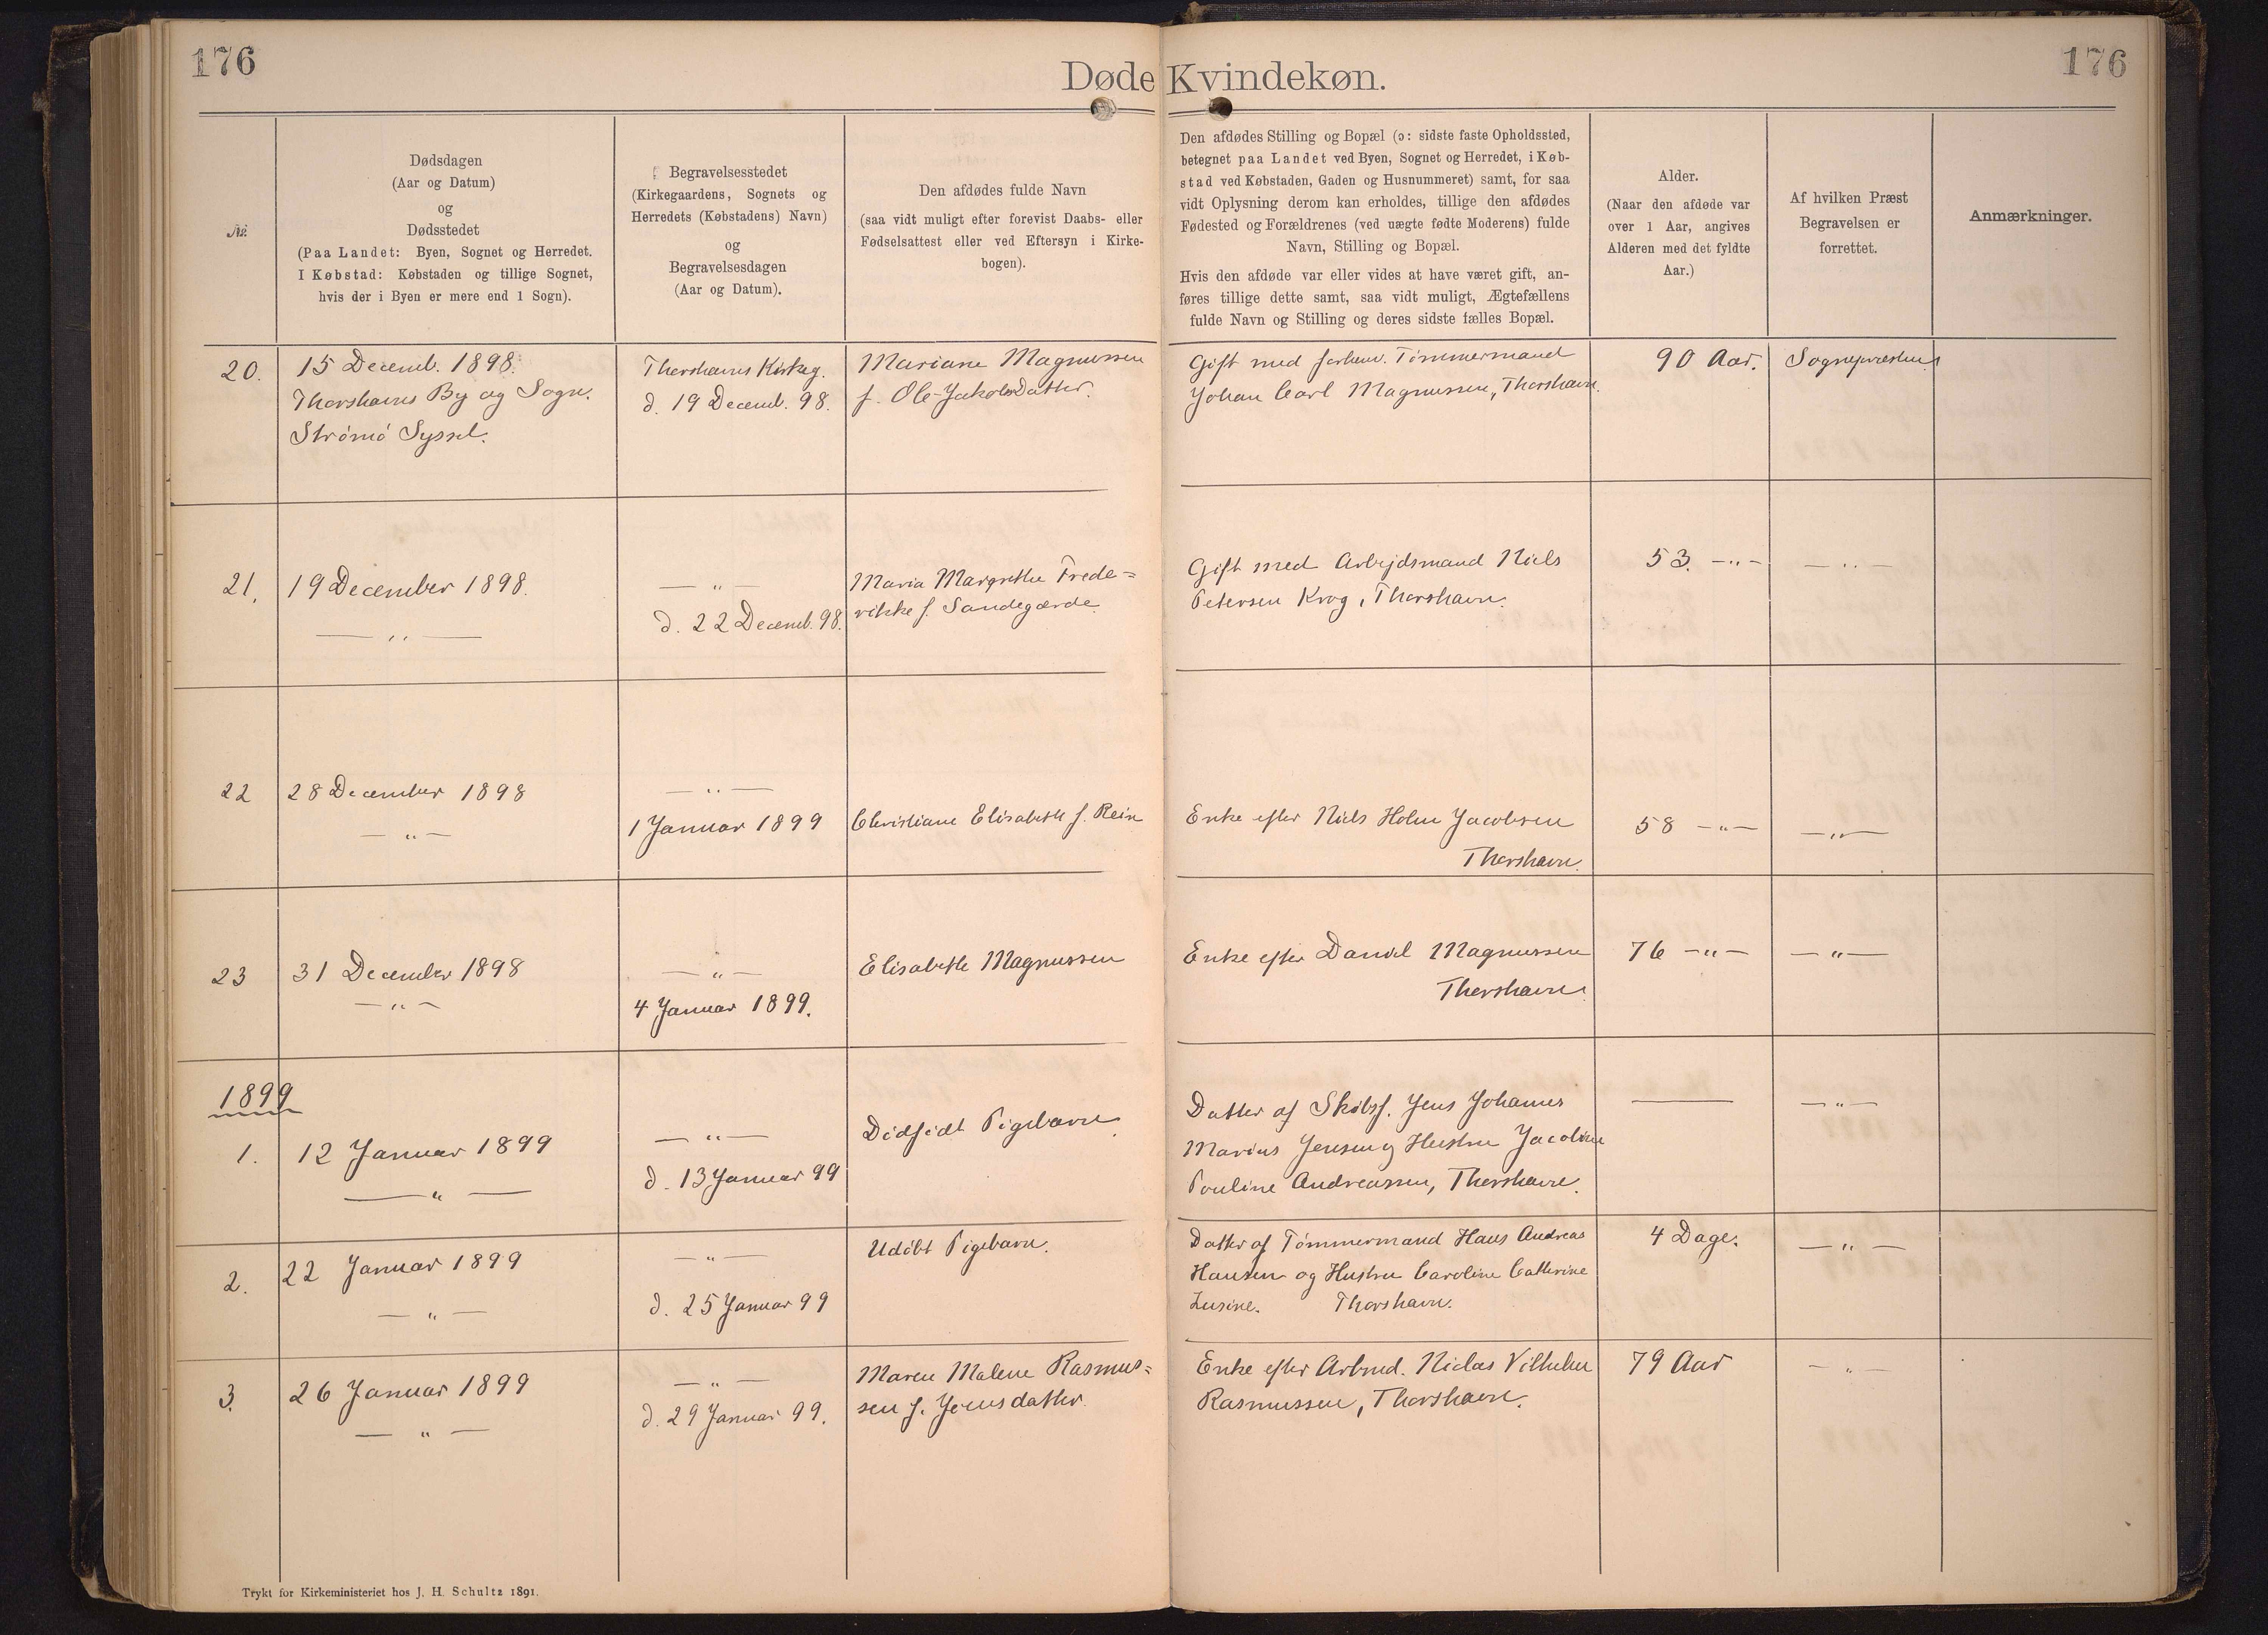 176
176
Døde Kvindekøn.
№.
Dødsdagen
(Aar og Datum)
og
Dødsstedet
(Paa Landet: Byen, Sognet og Herredet.
I Købstad: Købstaden og tillige Sognet,
hvis der i Byen er mere end 1 Sogn).
Begravelsesstedet
(Kirkegaardens, Sognets og
Herredets (Købstadens) Navn)
og
Begravelsesdagen
(Aar og Datum).
Den afdødes fulde Navn
(saa vidt muligt efter forevist Daabs- eller
Fødselsattest eller ved Eftersyn i Kirke-
bogen).
Den afdødes Stilling og Bopæl (ɔ: sidste faste Opholdssted,
betegnet paa Landet ved Byen, Sognet og Herredet, i Køb-
stad ved Købstaden, Gaden og Husnummeret) samt, for saa
vidt Oplysning derom kan erholdes, tillige den afdødes
Fødested og Forældrenes (ved uægte fødte Moderens) fulde
Navn, Stilling og Bopæl.
Hvis den afdøde var eller vides at have været gift, an-
føres tillige dette samt, saa vidt muligt, Ægtefællens
fulde Navn og Stilling og deres sidste fælles Bopæl.
Alder.
(Naar den afdøde var
over 1 Aar, angives
Alderen med det fyldte
Aar.)
Af hvilken Præst
Begravelsen er
forrettet.
Anmærkninger.
20.
15 Decemb. 1898.
Thorshavns By og Sogn.
Strømø Syssel.
Thorshavns Kirkeg.
d. 19 Decemb. 98.
Mariane Magnussen
f. Ole-JakobsDatter.
Gift med forhenv. Tømmermand
Johan Carl Magnussen, Thorshavn.
90 Aar.
Sognepræsten
21.
19 December 1898.
— " —
— " —
d. 22 Decemb. 98.
Maria Margrethe Frede=
rikke f. Sandegærde
Gift med Arbejdsmand Niels
Petersen Krog, Thorshavn.
53. —"—
— " —
22
28 December 1898
— " —
— " —
1 Januar 1899
Christiane Elisabeth f. Rein
Enke efter Niels Holm Jacobsen
Thorshavn.
58 —"—
— " —
23
31 December 1898
— " —
— " —
4 Januar 1899.
Elisabeth Magnussen
Enke efter Daniel Magnussen
Thorshavn.
76 —"—
— " —
1899
1.
12 Januar 1899
— " —
— " —
d. 13 Januar 99
Dødfødt Pigebarn.
Datter af Skibsf. Jens Johannes
Marius Jensen og Hustru Jacobine
Pouline Andreassen, Thorshavn.
—
— " —
2.
22 Januar 1899
— " —
— " —
d. 25 Januar 99
Udøbt Pigebarn.
Datter af Tømmermand Hans Andreas
Hansen og Hustru Caroline Cathrine
Lusine. Thorshavn.
4 Dage.
— " —
3.
26 Januar 1899
— " —
— " —
d. 29 Januar 99.
Maren Malene Rasmus=
sen f. Joensdatter.
Enke efter Arbmd. Niclas Vilhelm
Rasmussen, Thorshavn.
79 Aar
— " —
Trykt for Kirkeministeriet hos J. H. Schultz 1891.